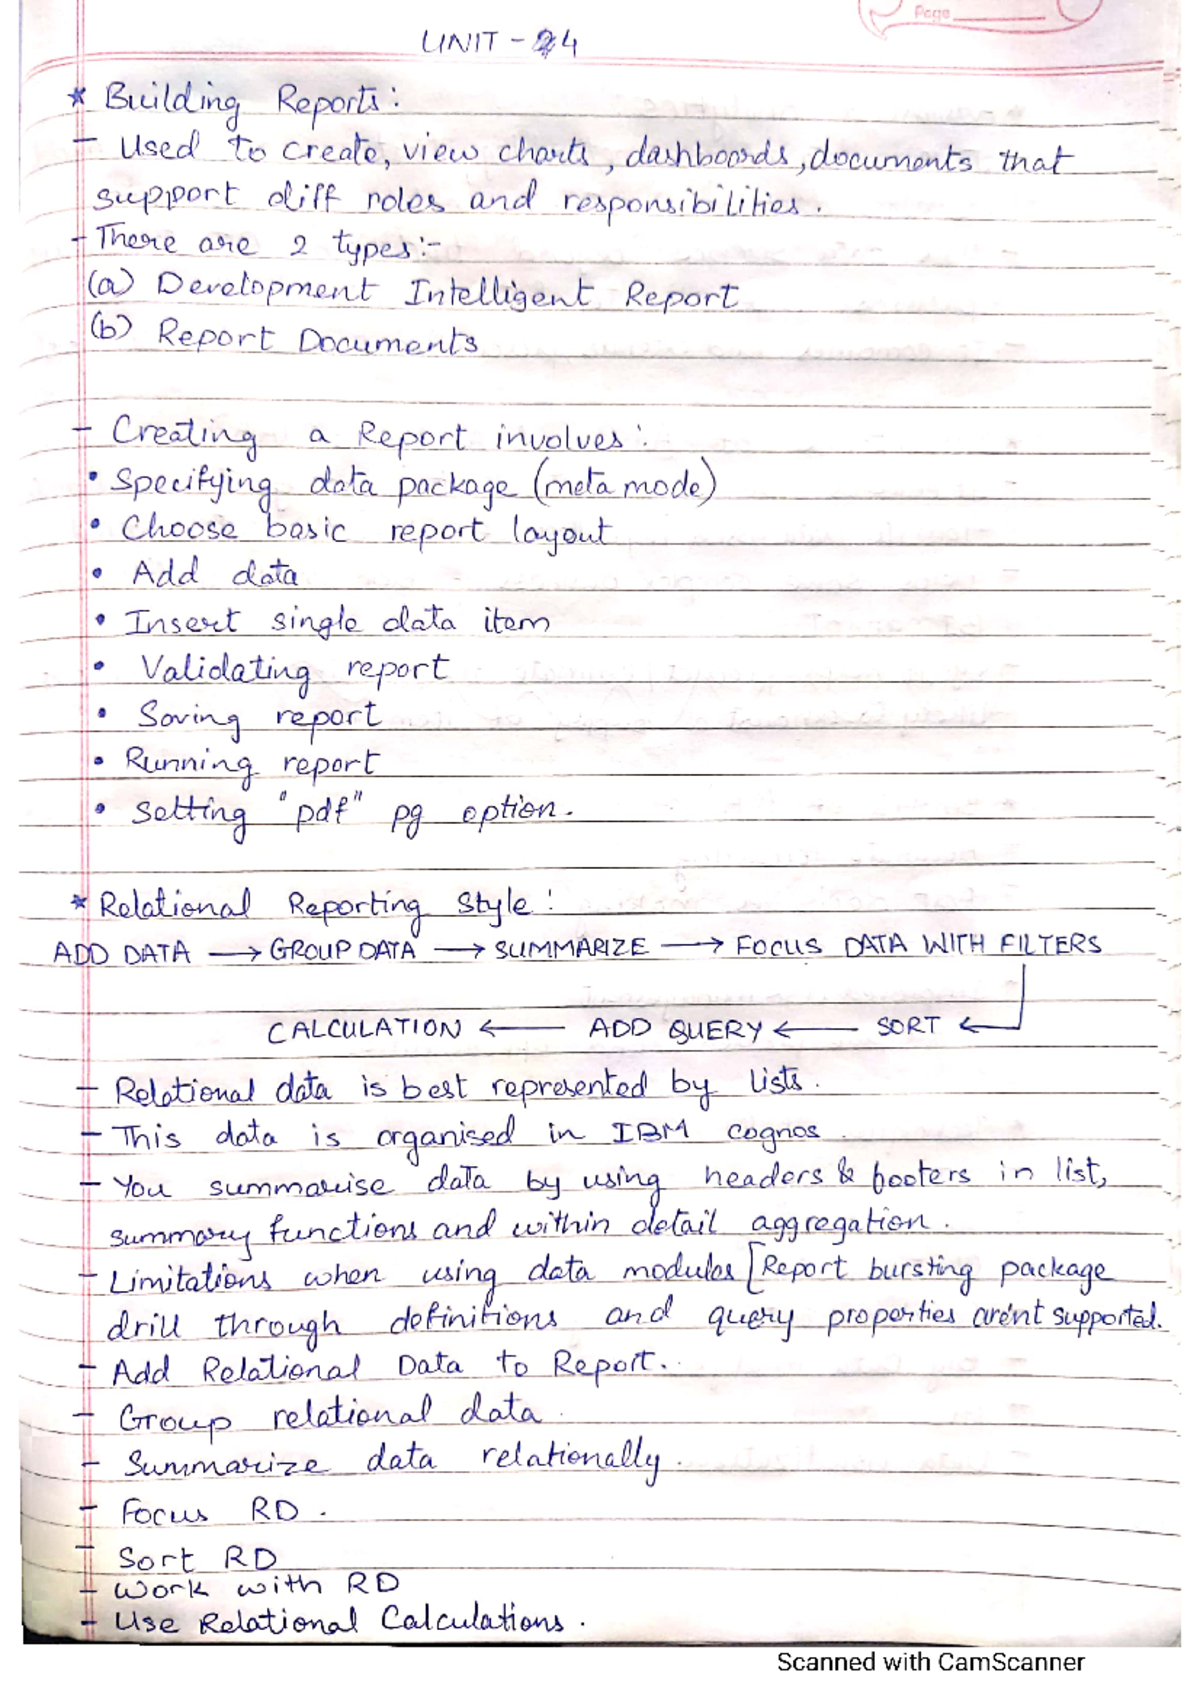 Page
UNIT - 4
* Building Reports:
- Used to create, view charts, dashboards, documents that
support diff roles and responsibilities.
- There are 2 types:-
(a) Development Intelligent Report
(b) Report Documents
- Creating a Report involves:
• Specifying data package (meta mode)
• Choose basic report layout
• Add data
• Insert single data item
• Validating report
• Saving report
• Running report
• Setting "pdf" pg option.
* Relational Reporting Style:
ADD DATA → GROUP DATA → SUMMARIZE → FOCUS DATA WITH FILTERS
CALCULATION ← ADD QUERY ← SORT ←
- Relational data is best represented by lists.
- This data is organised in IBM cognos.
- You summarise data by using headers & footers in list,
summary functions and within detail aggregation.
- Limitations when using data modules [Report bursting package
drill through definitions and query properties aren't supported.
- Add Relational Data to Report.
- Group relational data.
- Summarize data relationally.
- Focus RD.
- Sort RD
- Work with RD
- Use Relational Calculations.
Scanned with CamScanner